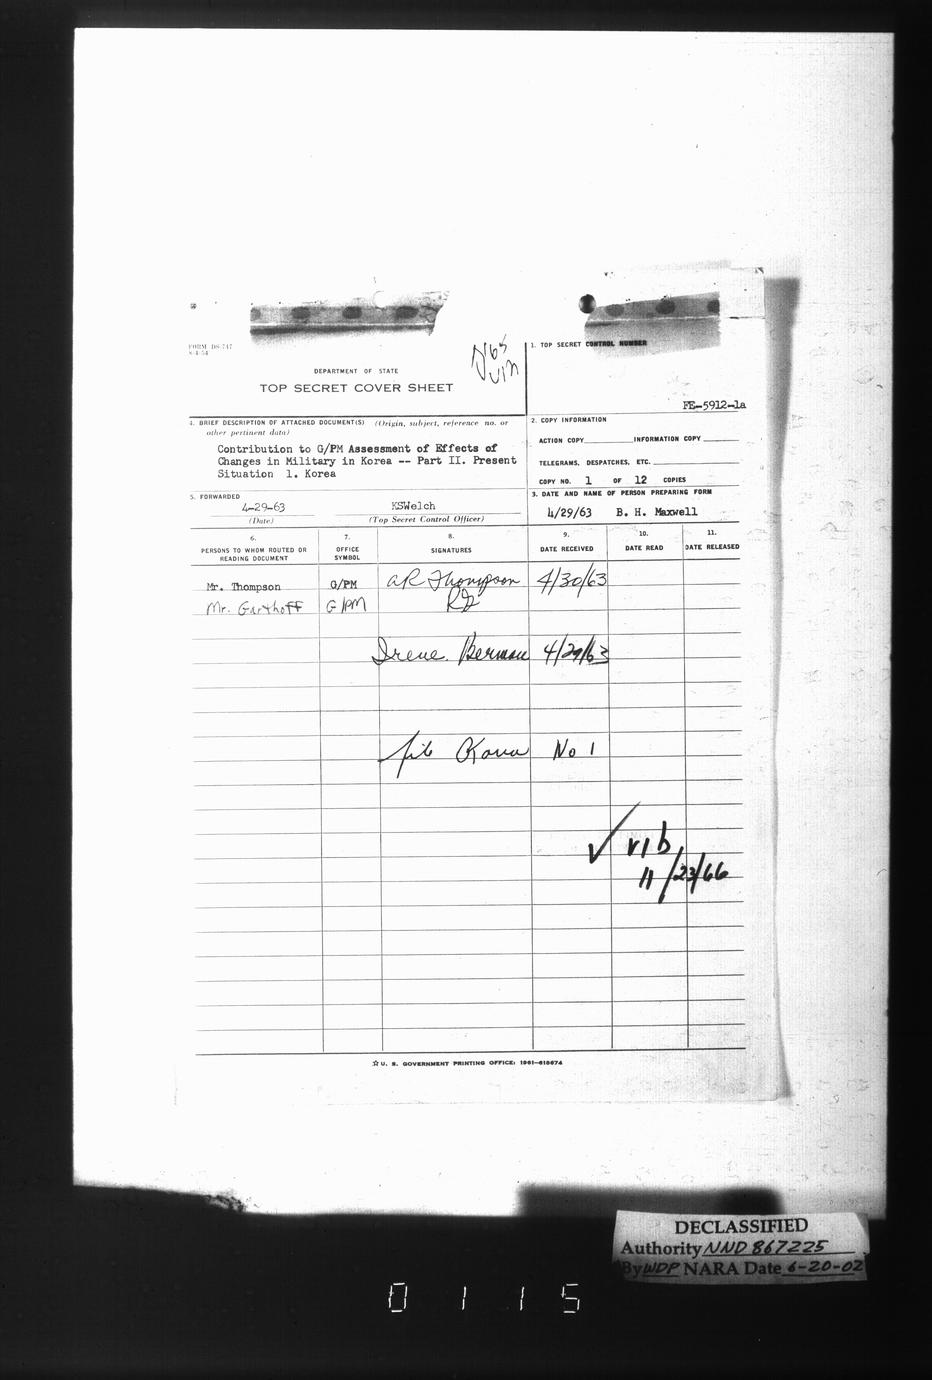 FORM DS-747
8-4-54
DEPARTMENT OF STATE
TOP SECRET COVER SHEET
1. TOP SECRET CONTROL NUMBER
FE-5912-1a
4. BRIEF DESCRIPTION OF ATTACHED DOCUMENT(S) (Origin, subject, reference no. or
other pertinent data)
Contribution to G/PM Assessment of Effects of
Changes in Military in Korea -- Part II. Present
Situation 1. Korea
2. COPY INFORMATION
ACTION COPY INFORMATION COPY
TELEGRAMS, DESPATCHES, ETC.
COPY NO. 1 OF 12 COPIES
5. FORWARDED
4-29-63 KSWelch
(Date) (Top Secret Control Officer)
3. DATE AND NAME OF PERSON PREPARING FORM
4/29/63 B. H. Maxwell
6. 7. 8. 9. 10. 11.
PERSONS TO WHOM ROUTED OR
READING DOCUMENT
OFFICE
SYMBOL
SIGNATURES
DATE RECEIVED
DATE READ
DATE RELEASED
Mr. Thompson G/PM AR Thompson 4/30/63
Mr. Garthoff G/PM
Irene Berman 4/29/63
file Korea No 1
✓ vib
11/23/66
☆ U. S. GOVERNMENT PRINTING OFFICE: 1961-618674
DECLASSIFIED
Authority NND 867225
By WDP NARA Date 6-20-02
0115